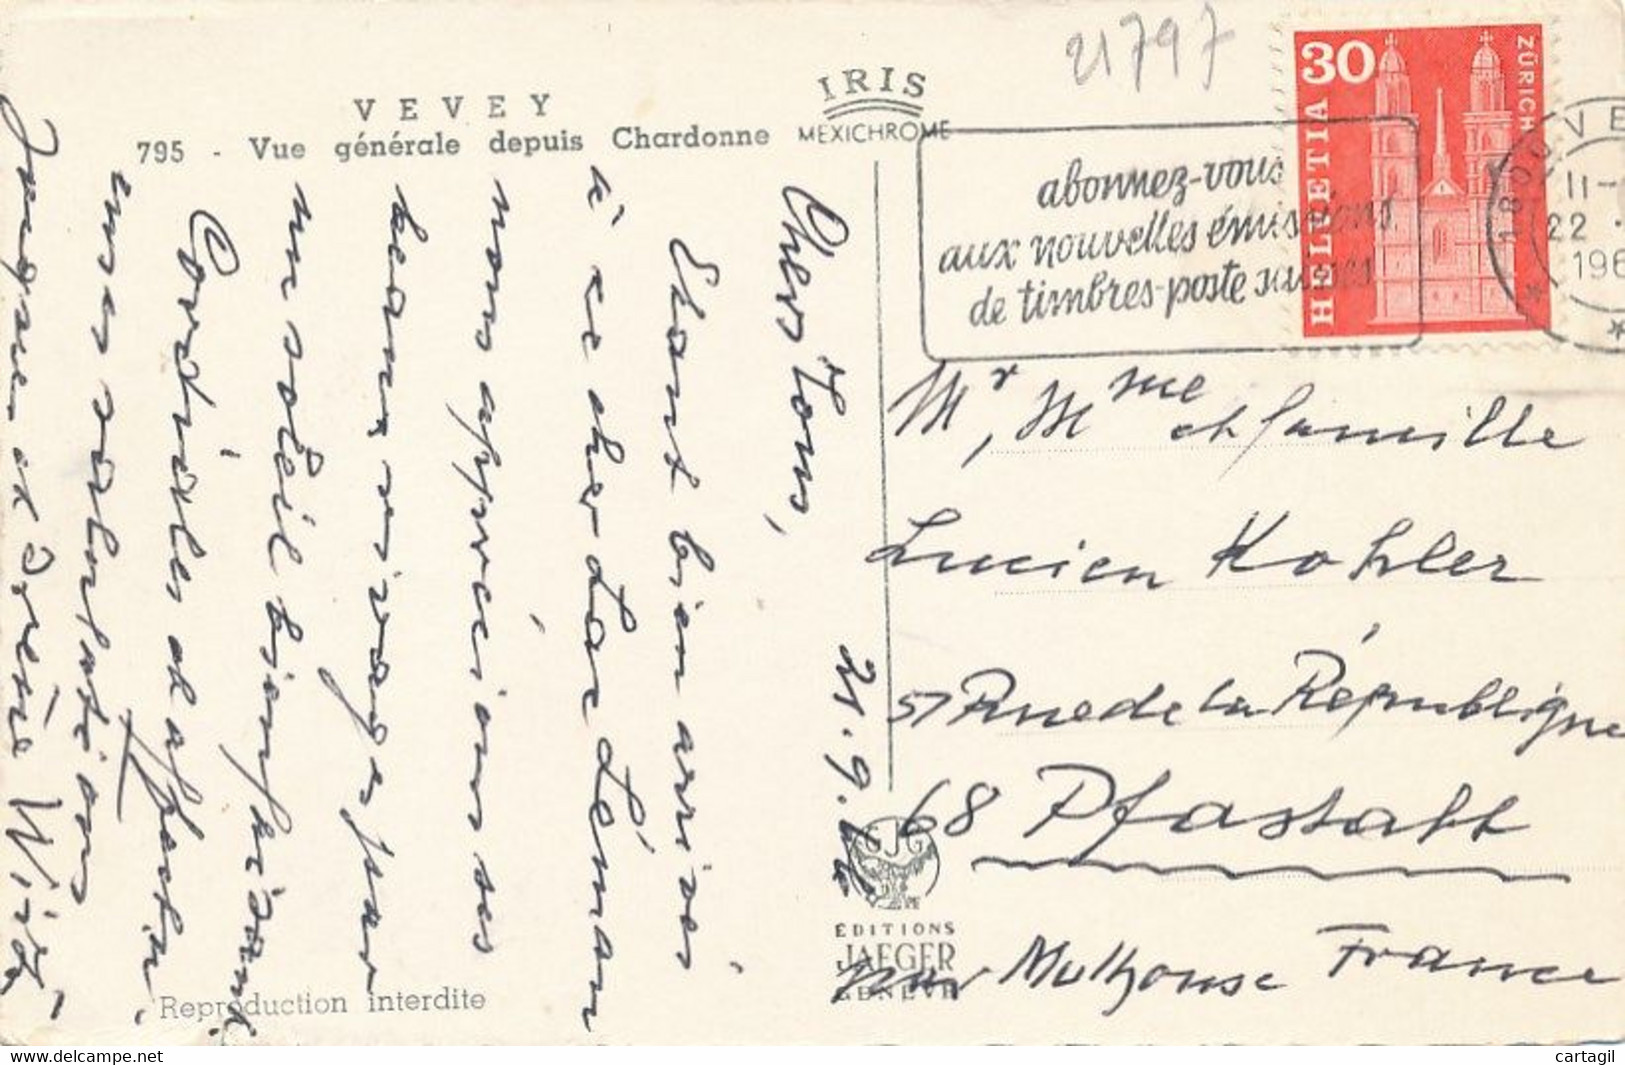 21797
VEVEY
795 - Vue générale depuis Chardonne
IRIS
MEXICHROME
30
HELVETIA
ZÜRICH
abonnez-vous
aux nouvelles émissions
de timbres-poste suisses
1800 VE
II-
22.
196
Chers Tous,
21.9.
Etant bien arrivés
à ce cher Lac Léman
nous apprécions ses
beaux rivages par
un soleil bienfaisant.
Cordiales et affectu
euses salutations
et Irène
Mr, Mme et famille
Lucien Kohler
57 Rue de la République
68 Pfastatt
Mulhouse France
ÉDITIONS
JAEGER
GENÈVE
Reproduction interdite
www.delcampe.net
cartagil